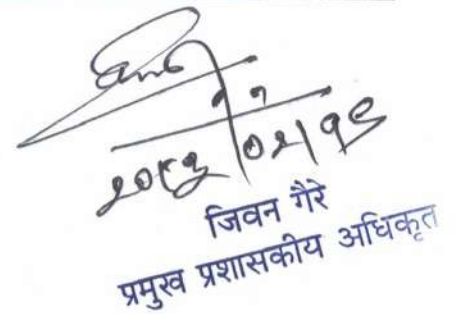 २०८३/०२/१९
जिवन गैरे
प्रमुख प्रशासकीय अधिकृत